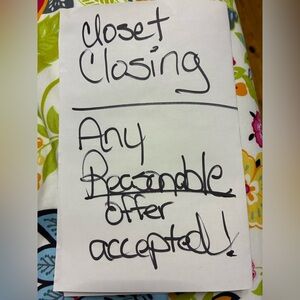 Closet
Closing
Any
Reasonable
offer
accepted!